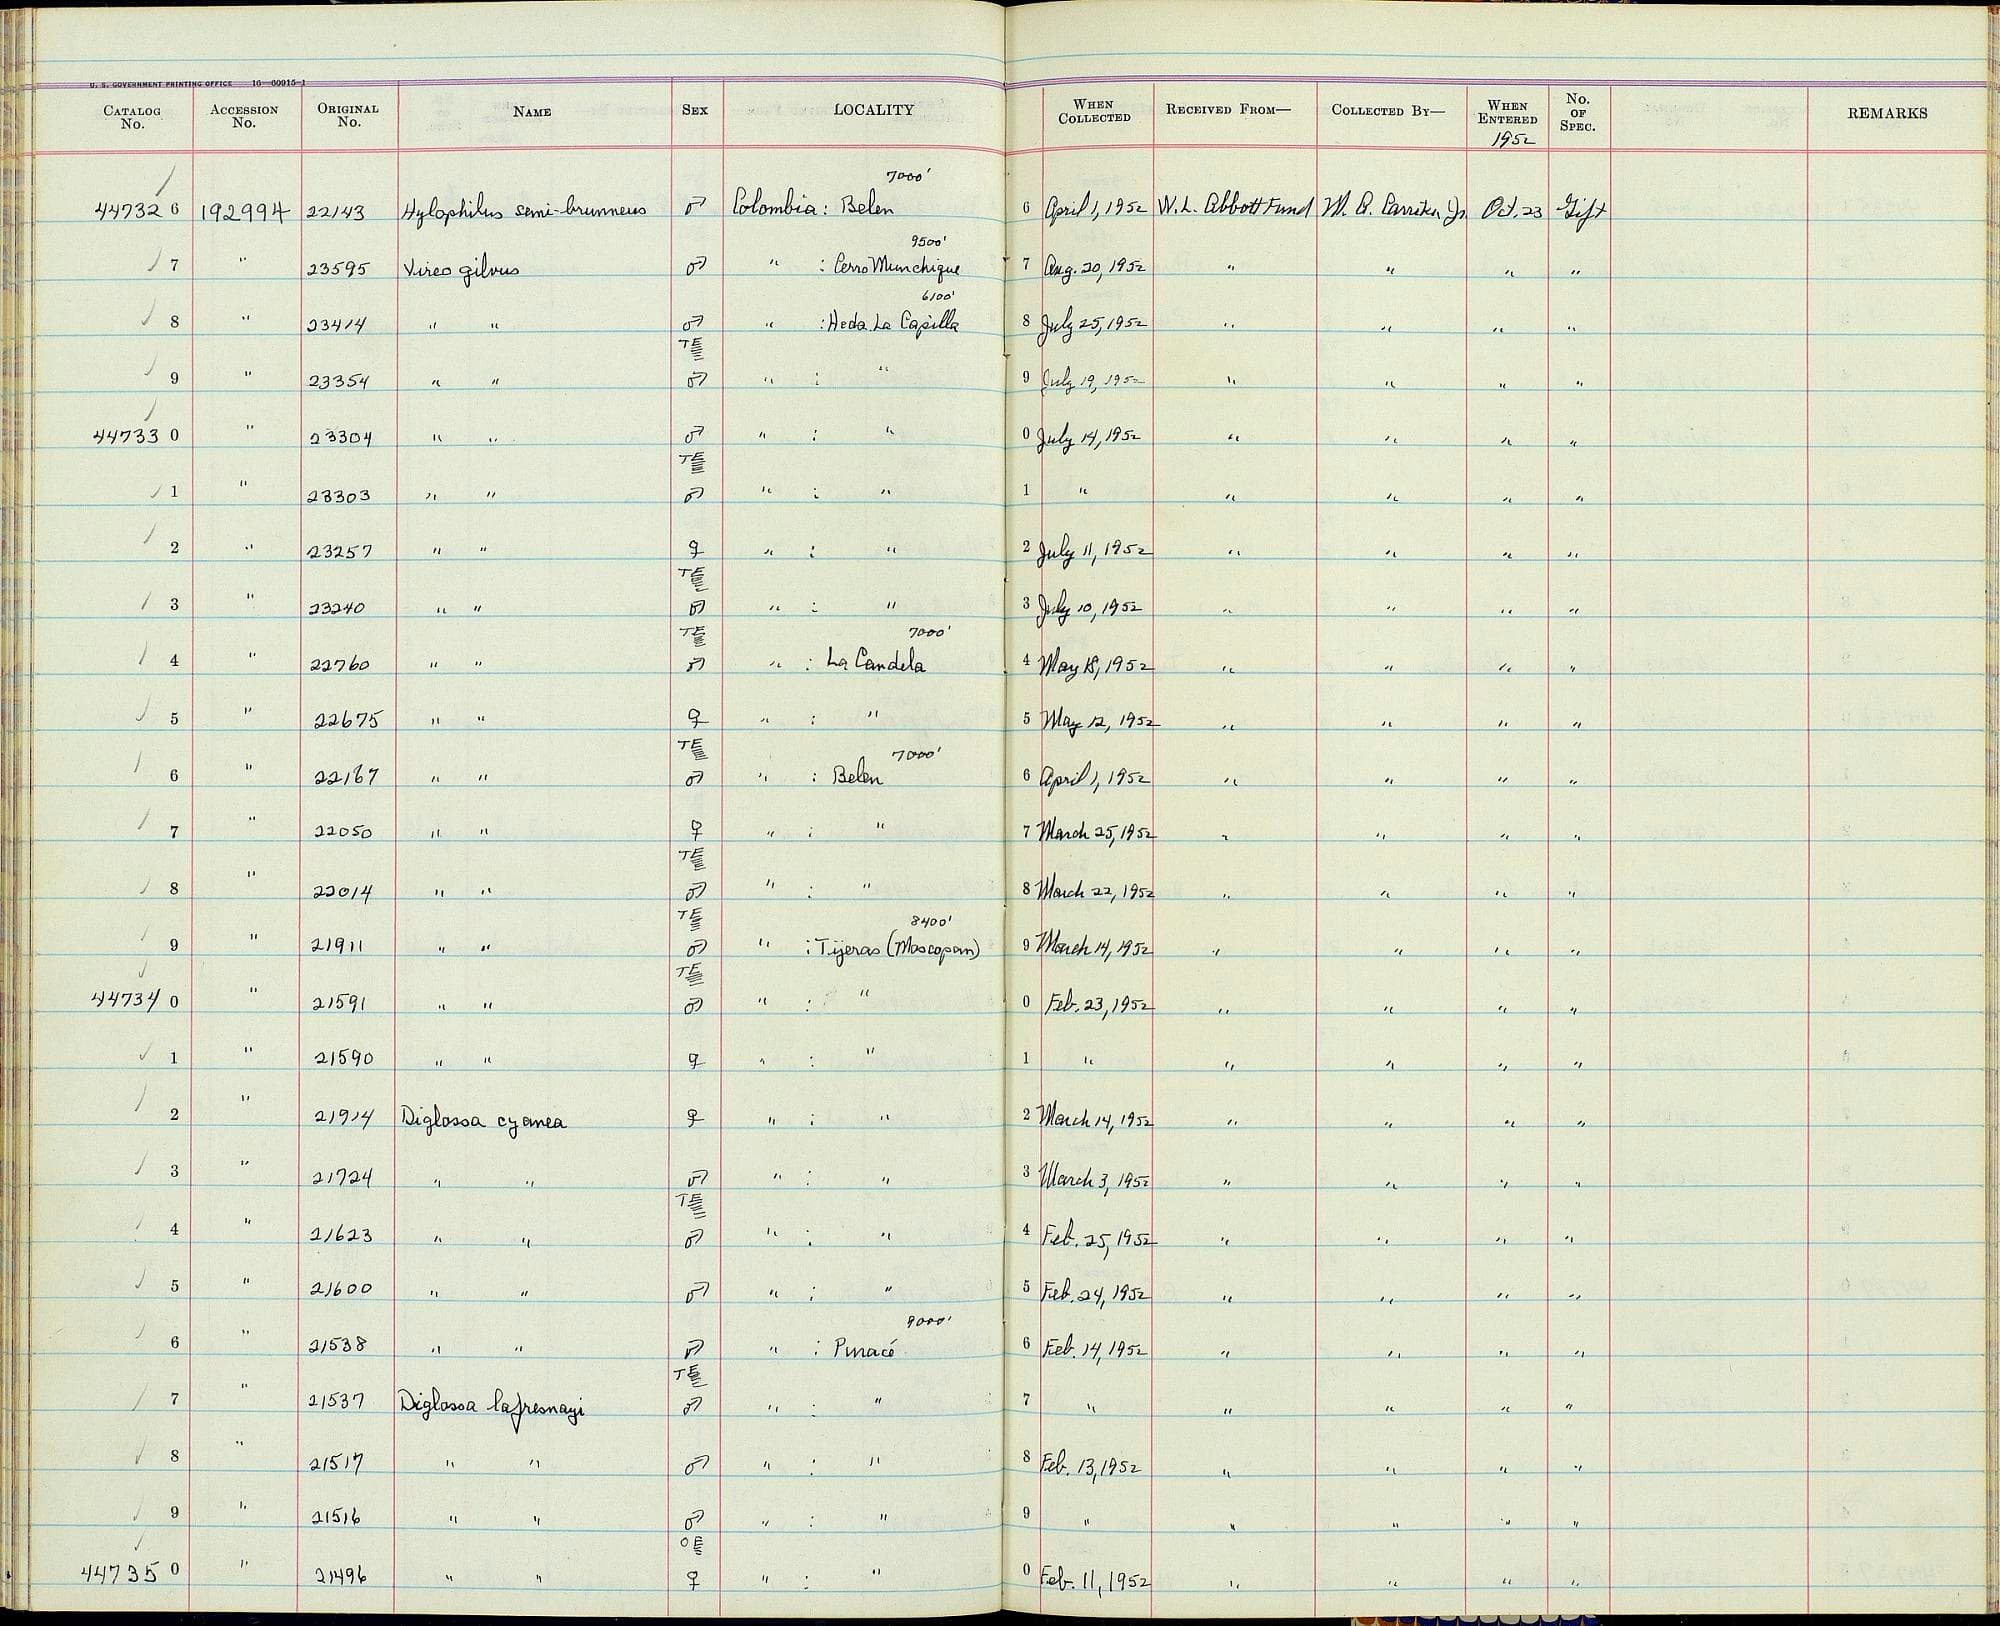 U. S. GOVERNMENT PRINTING OFFICE 16—60915-1
CATALOG No. ACCESSION No. ORIGINAL No. NAME SEX LOCALITY WHEN COLLECTED RECEIVED FROM— COLLECTED BY— WHEN ENTERED 1952 No. OF SPEC. REMARKS
7000'
44732 6 192994 22143 Hylophilus semi-brunneus ♂ Colombia: Belen 6 April 1, 1952 W.L. Abbott Fund M. A. Carriker, Jr. Oct. 23 Gift
9500'
7 " 23595 Vireo gilvus ♂ " : Cerro Munchique 7 Aug. 20, 1952 " " " "
6100'
8 " 23414 " " ♂ " : Hcda. La Capilla 8 July 25, 1952 " " " "
TE
9 " 23354 " " ♂ " : " 9 July 19, 1952 " " " "
44733 0 " 23304 " " ♂ " : " 0 July 14, 1952 " " " "
TE
1 " 23303 " " ♂ " : " 1 " " " " "
2 " 23257 " " ♀ " : " 2 July 11, 1952 " " " "
TE
3 " 23240 " " ♂ " : " 3 July 10, 1952 " " " "
TE 7000'
4 " 22760 " " ♂ " : La Candela 4 May 18, 1952 " " " "
5 " 22675 " " ♀ " : " 5 May 12, 1952 " " " "
TE 7000'
6 " 22167 " " ♂ " : Belen 6 April 1, 1952 " " " "
7 " 22050 " " ♀ " : " 7 March 25, 1952 " " " "
TE
8 " 22014 " " ♂ " : " 8 March 22, 1952 " " " "
TE 8400'
9 " 21911 " " ♂ " : Tijeras (Moscopan) 9 March 14, 1952 " " " "
TE
44734 0 " 21591 " " ♂ " : " 0 Feb. 23, 1952 " " " "
1 " 21590 " " ♀ " : " 1 " " " " "
2 " 21914 Diglossa cyanea ♀ " : " 2 March 14, 1952 " " " "
3 " 21724 " " ♂ " : " 3 March 3, 1952 " " " "
TE
4 " 21623 " " ♂ " : " 4 Feb. 25, 1952 " " " "
5 " 21600 " " ♂ " : " 5 Feb. 24, 1952 " " " "
9000'
6 " 21538 " " ♂ " : Puracé 6 Feb. 14, 1952 " " " "
TE
7 " 21537 Diglossa lafresnayi ♂ " : " 7 " " " " "
8 " 21517 " " ♂ " : " 8 Feb. 13, 1952 " " " "
9 " 21516 " " ♂ " : " 9 " " " " "
OE
44735 0 " 21496 " " ♀ " : " 0 Feb. 11, 1952 " " " "